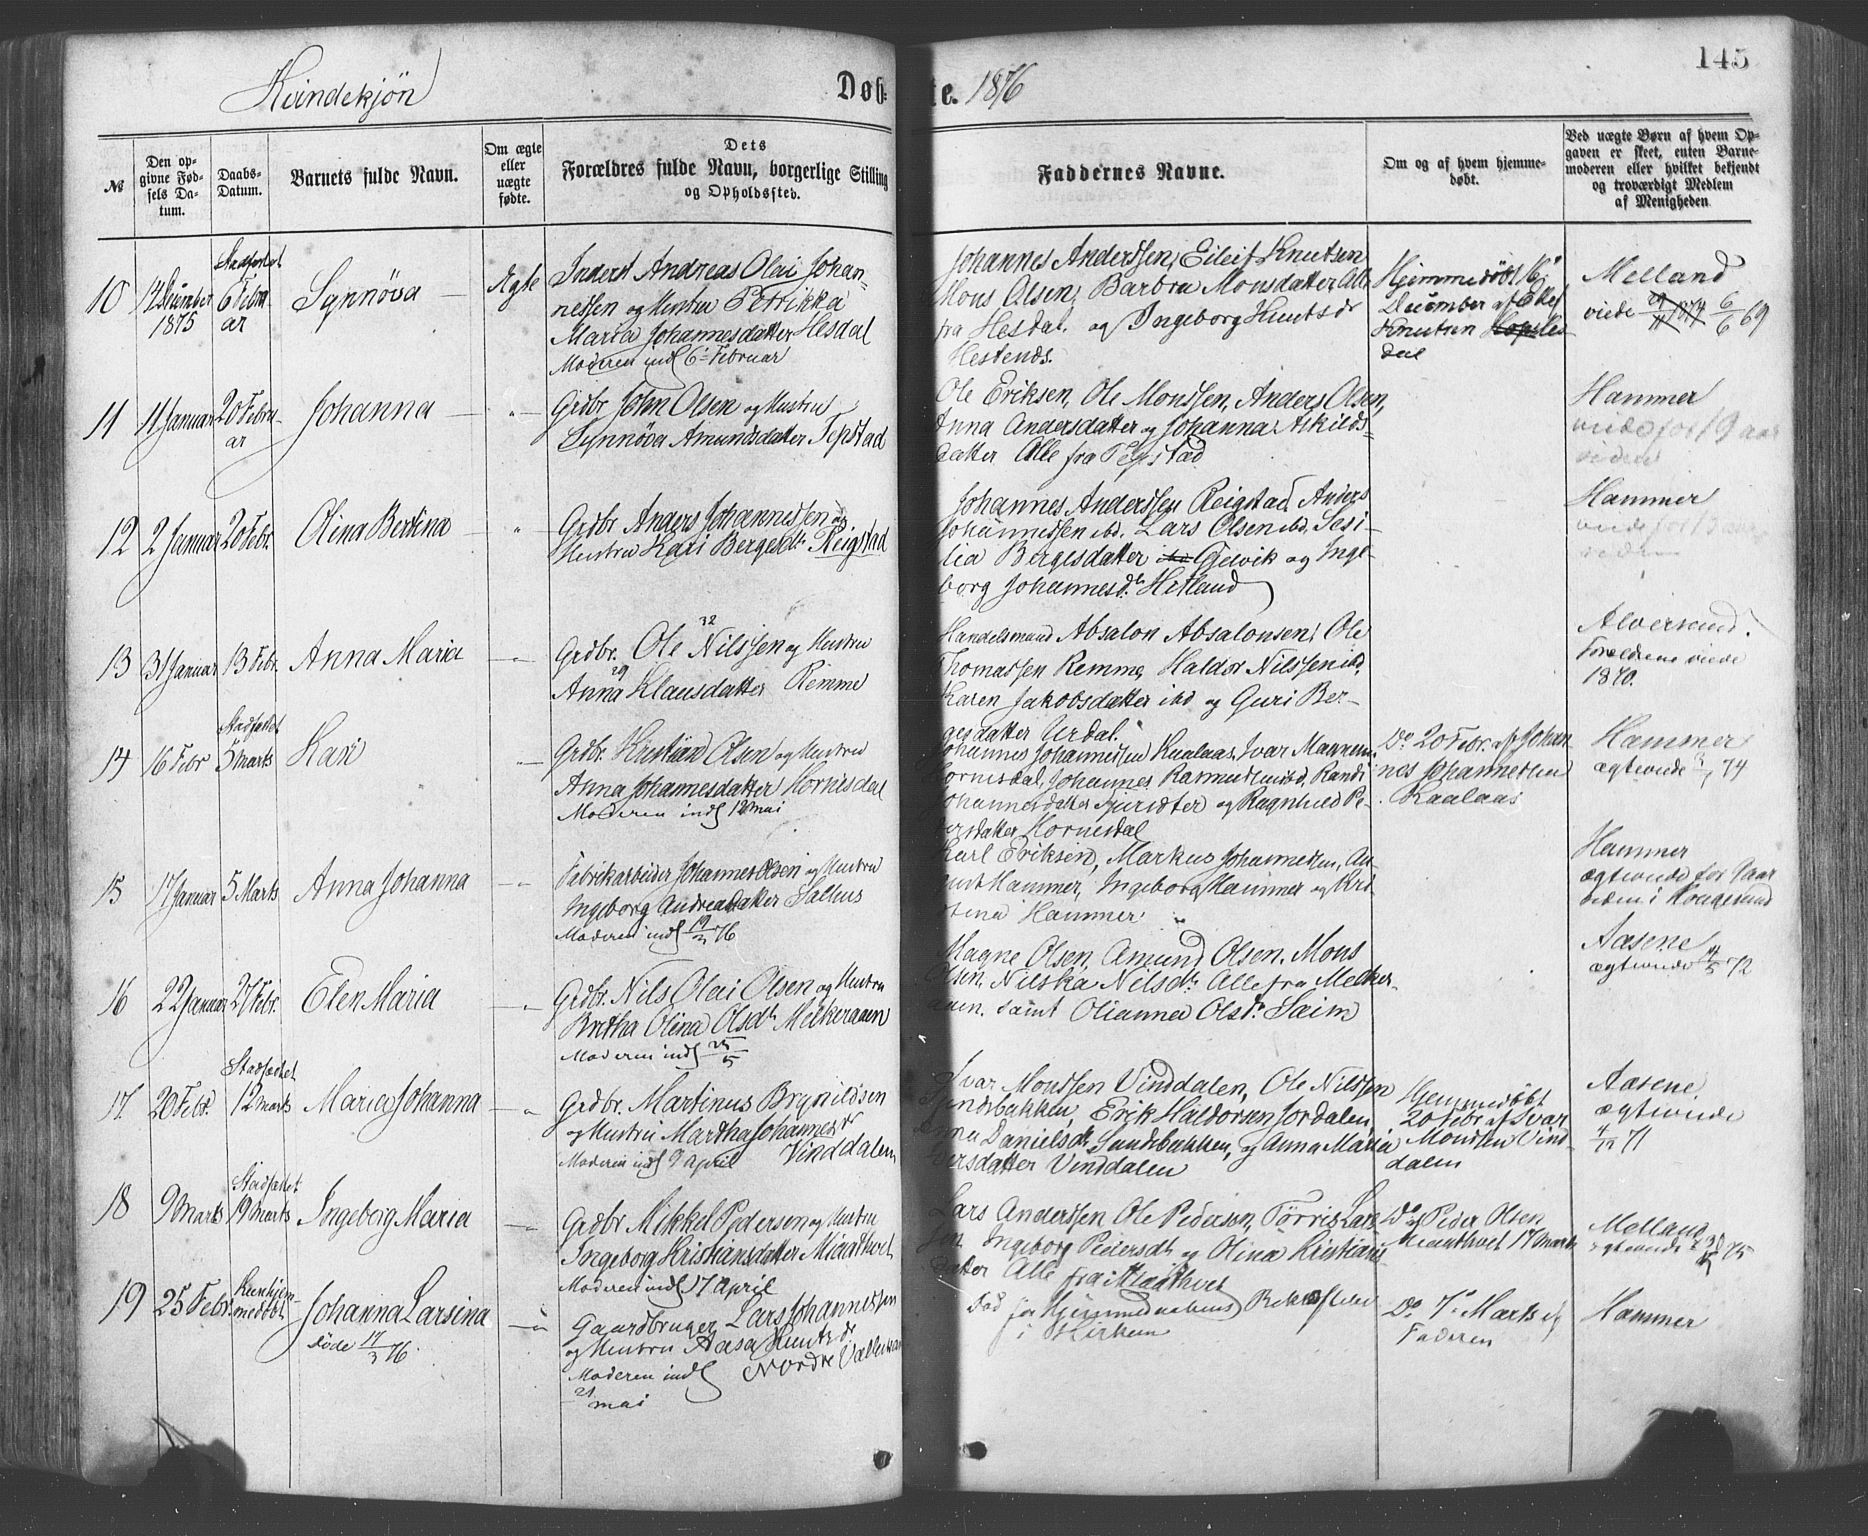 145
Kvindekjön
Døb-
te. 1876
№
Den op-
givne Fød-
sels Da-
tum.
Daabs-
Datum.
Barnets fulde Navn.
Om ægte
eller
uægte
fødte.
Dets
Forældres fulde Navn, borgerlige Stilling
og Opholdssted.
Faddernes Navne.
Om og af hvem hjemme-
døbt.
Ved uægte Børn af hvem Op-
gaven er skeet, enten Barne-
moderen eller hvilket bekjendt
og troværdigt Medlem
af Menigheden
10
14 December
1875
Stadfæstet
6 Febru
ar
Synnöva
Ægte
Inderst Andreas Olai Johan-
nessen og Hustru Petrikka
Maria Johannesdatter Hesdal
Moderen indl 6 Februar
Johannes Anderssen, Eileif Knutsen
Mons Olsen, Barbra Monsdatter Alle
fra Hesdal. og Ingeborg Knutsdr
Hestenæs.
Hjemmedöbt 16
December af Eilef
Knutsen Hes
dal
Melland
viede 6/6 69
11
11 Januar
20 Febru
ar
Johanna
Grdbr. John Olsen og Hustru
Synnöva Amundsdatter Tepstad
Ole Eriksen, Ole Monssen, Anders Olsen,
Anna Andersdatter og Johanna Askilds-
datter Alle fra Tepstad
Hammer
viede for 19 aar
siden
12
2 Januar
20 Febr.
Olina Bertina
Grdbr Anders Johannessen og
Hustru Kari Bergesdtr Reigstad
Johannes Anderssen Reigstad, Anders
Johannessen ibd. Lars Olsen ibd. Sesi-
lia Bergesdatter Gjelvik og Inge-
borg Johannesdtr Hetland
Hammer
viede for
siden
13
31 Januar
13 Febr.
Anna Maria
32
Grdbr. Ole Nilssen og Hustru
29
Anna Klausdatter Remme
Handelsmand Absalon Absalonsen, Ole
Thomassen Remme, Haldor Nilssen ibd.
Karen Jakobsdatter ibd og Guri Ber-
gesdatter Urdal.
Alversund.
Forældrene viede
1870.
14
16 Febr
Stadfæstet
5 Marts
Kari
Grdbr. Kristian Olsen og Hustru
Anna Johannesdatter Hornesdal
Moderen indl 12 mai
Johannes Johannessen Kaalaas, Ivar Magnesen
Hornesdal, Johannes Rasmussen ibd, Randi
Johannesdatter og Ragnhild Pe-
dersdatter Hornesdal
Do 20 Febr. af Johan
nes Johannessen
Kaalaas
Hammer
ægteviede 74
15
17 Januar
5 Marts
Anna Johanna
Fabrikarbeider Johannes Olsen og Hustru
Ingeborg Andreasdatter Salhus
Moderen indl 19/3 76
Karl Eriksen, Markus Johannessen, An-
Hammer, Ingeborg Hammer og Kri-
stena Hammer
Hammer
ægteviede for 7 aar
siden i Hougesund
16
22 Januar
27 Febr.
Elen Maria
Grdbr. Nils Olai Olsen og Hustru
Brtha Olina Olsdtr Melkeraaen
Moderen indl
Magne Olsen, Amund Olsen, Mons
Olsen, Nilska Nilsdtr. Alle fra Melker-
aaen. samt Olianna Olsdtr Saim
Aasene
ægteviede 72
17
20 Febr.
Stadfæstet
12 marts
Maria Johanna
Grdbr. Martinus Brynildsen
og Hustru Martha Johannesdr
Moderen indl 9 april Vinddalen
Ivar Monssen Vinddalen, Ole Nilssen
Sundsbakken, Erik Haldorsen Jordalen,
Anna Danielsdtr Sundsbakken, og Anna Maria
Iversdatter Vinddalen
Hjemmedöbt
20 Febr af Ivar
Monssen Vind-
dalen
Aasene
ægteviede
4/12 71
18
9 Marts
Stadfæstet
19 Marts
Ingeborg Maria
Grdbr Mikkel Pedersen og Hustru
Ingeborg Kristiansdatter Mjaathvet
Moderen indl 17 april
Lars Anderssen, Ole Pedersen, Törris Lars-
sen, Ingeborg Pedersdtr og Olina Kristians-
datter Alle fra Mjaathvet
Do af Peder Olsen
Mjaathvet 17 Marts
Melland
ægteviede 75
19
25 Febr.
Kun hjem-
medöbt
Johanna Larsina
döde 17/3 76.
Gaardbruger Lars Johannessen
og Hustru Aasa Knutsdr
Moderen indl Nordre
21
mai
för Hjemmedaabens Bekræftelse
i Kirken
Do 7 Marts af
Faderen
Hammer